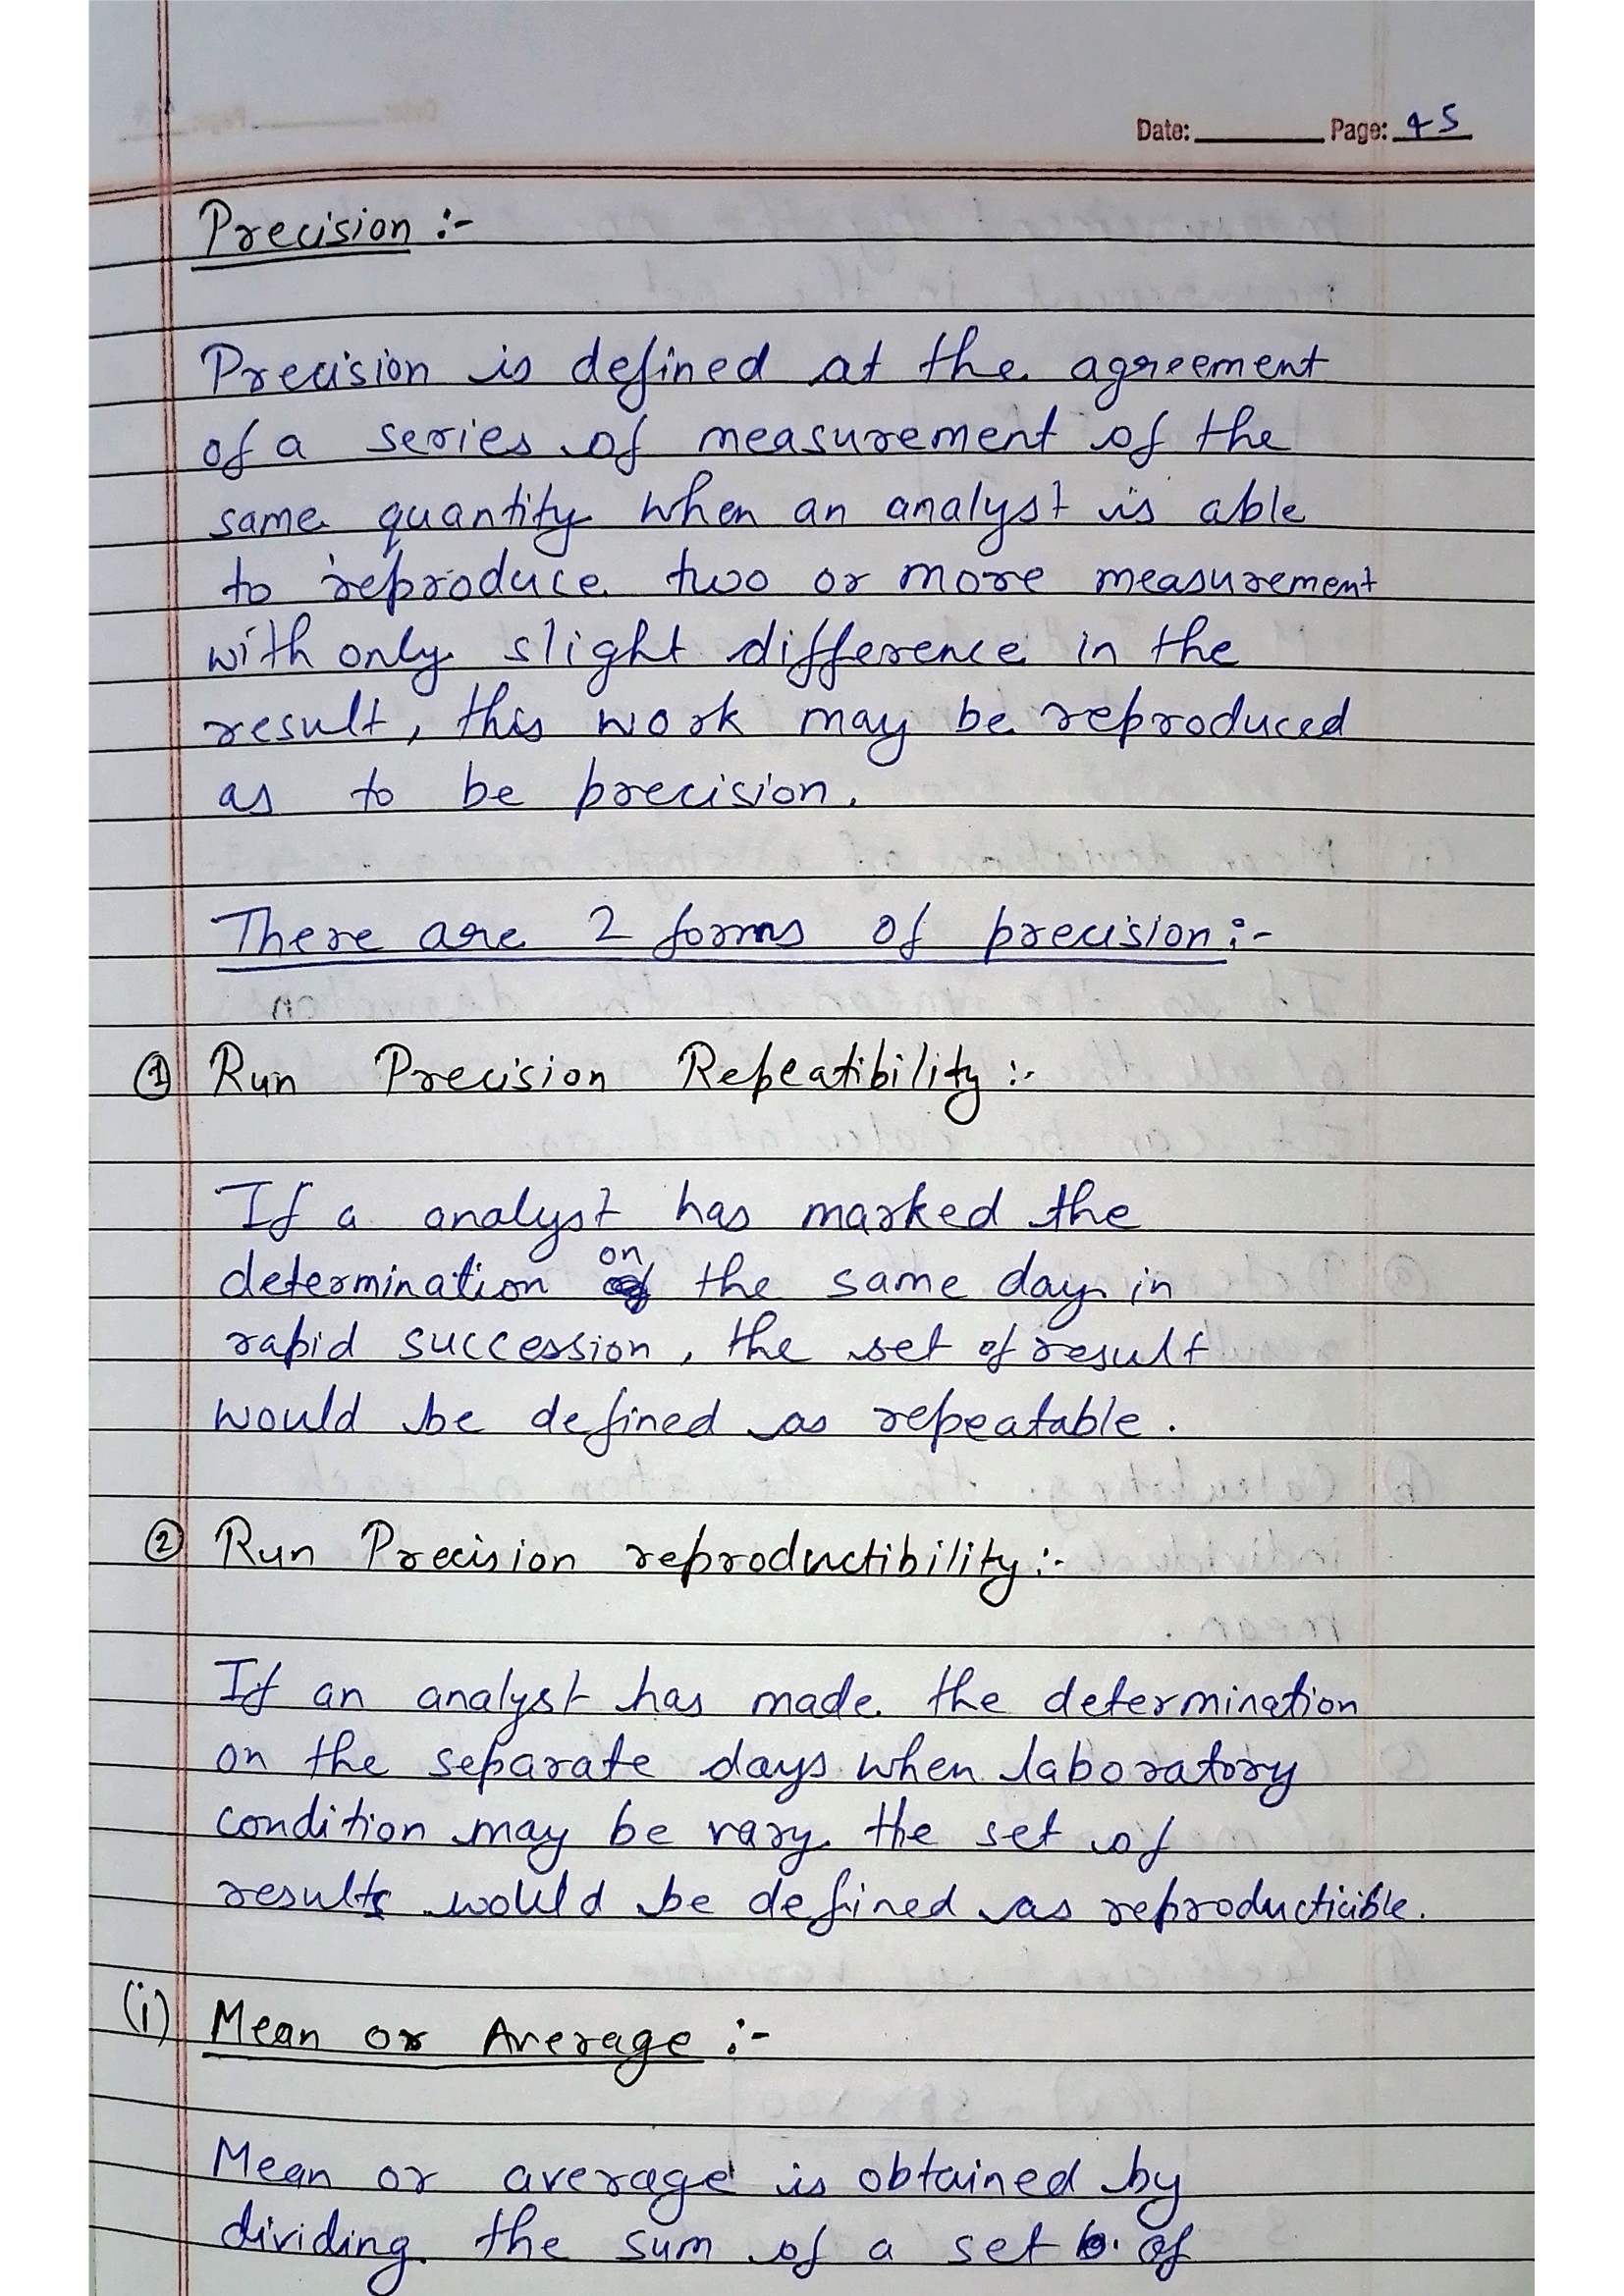 Date: Page: 45
Precision :-
Precision is defined at the agreement
of a series of measurement of the
same quantity when an analyst is able
to reproduce two or more measurement
with only slight difference in the
result, this work may be reproduced
as to be precision.
There are 2 forms of precision :-
① Run Precision Repeatibility :-
If a analyst has marked the
determination on the same day in
rapid succession, the set of result
would be defined as repeatable.
② Run Precision reproductibility :-
If an analyst has made the determination
on the separate days when laboratory
condition may be vary the set of
results would be defined as reproducticible.
(i) Mean or Average :-
Mean or average is obtained by
dividing the sum of a set of